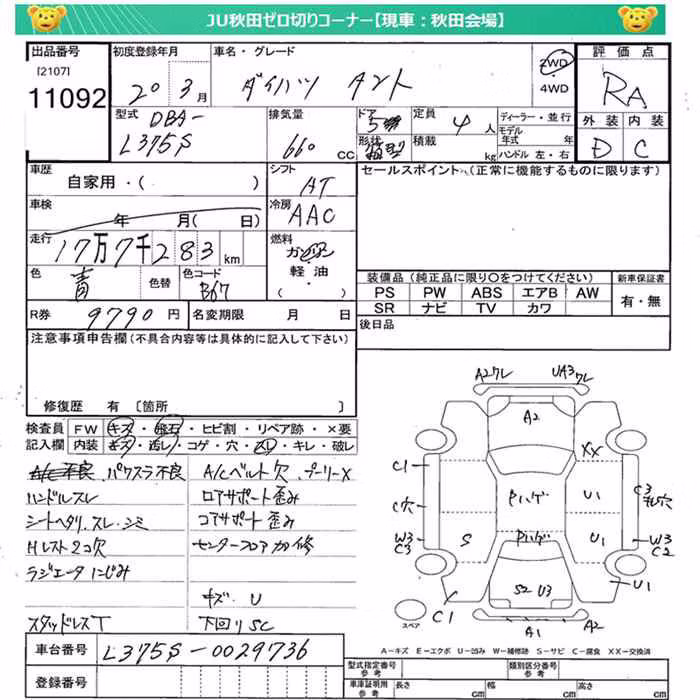 JU秋田ゼロ切りコーナー【現車：秋田会場】
出品番号 初度登録年月 車名・グレード 評価点
[2107]
11092 20 3月 ダイハツ タント 2WD ・4WD RA
型式 DBA-L375S 排気量 660 CC ドア 5 形状 箱型 定員 4人 積載 kg ディーラー・並行 モデル年式 年 ハンドル 左・右 外装 内装
D C
車歴 自家用・( ) シフト AT セールスポイント (正常に機能するものに限ります)
車検 年 月( 日) 冷房 AAC
走行 17万7千283km 燃料 ガソリン 軽油・( ・ )
色 青 色替 色コード B67 装備品(純正品に限り○をつけてください) 新車保証書
PS PW ABS エアB AW 有・無
SR ナビ TV カワ
R券 9790円 名変期限 月 日 後日品
注意事項申告欄(不具合内容等は具体的に記入して下さい)
修復歴 有 〔箇所 〕
検査員 FW キズ・飛石・ヒビ割・リペア跡・×要
記入欄 内装 キズ・汚レ・コゲ・穴・スレ・キレ・破レ
A/C不良 パワスラ不良 A/Cベルト欠 プーリーX
ハンドルスレ ロアサポート歪み
シートヘタリ、スレ、シミ コアサポート歪み
Hレスト2コ欠 センターフロア加修
ラジエータにじみ
キズ U
スタッドレスT 下回りSC
A2ワレ UA3ワレ
A2
XX
C1 U1 C3
C穴
W3 C3 S U1 W3 C2
S2 U3 U1
C1
スペア A1 A2
A－キズ E－エクボ U－凹み W－補修跡 S－サビ C－腐食 XX－交換済
車台番号 L375S-0029736
登録番号
型式指定番号 参考 類別区分番号 参考
車庫証明用 参考 長さ cm 幅 cm 高さ cm